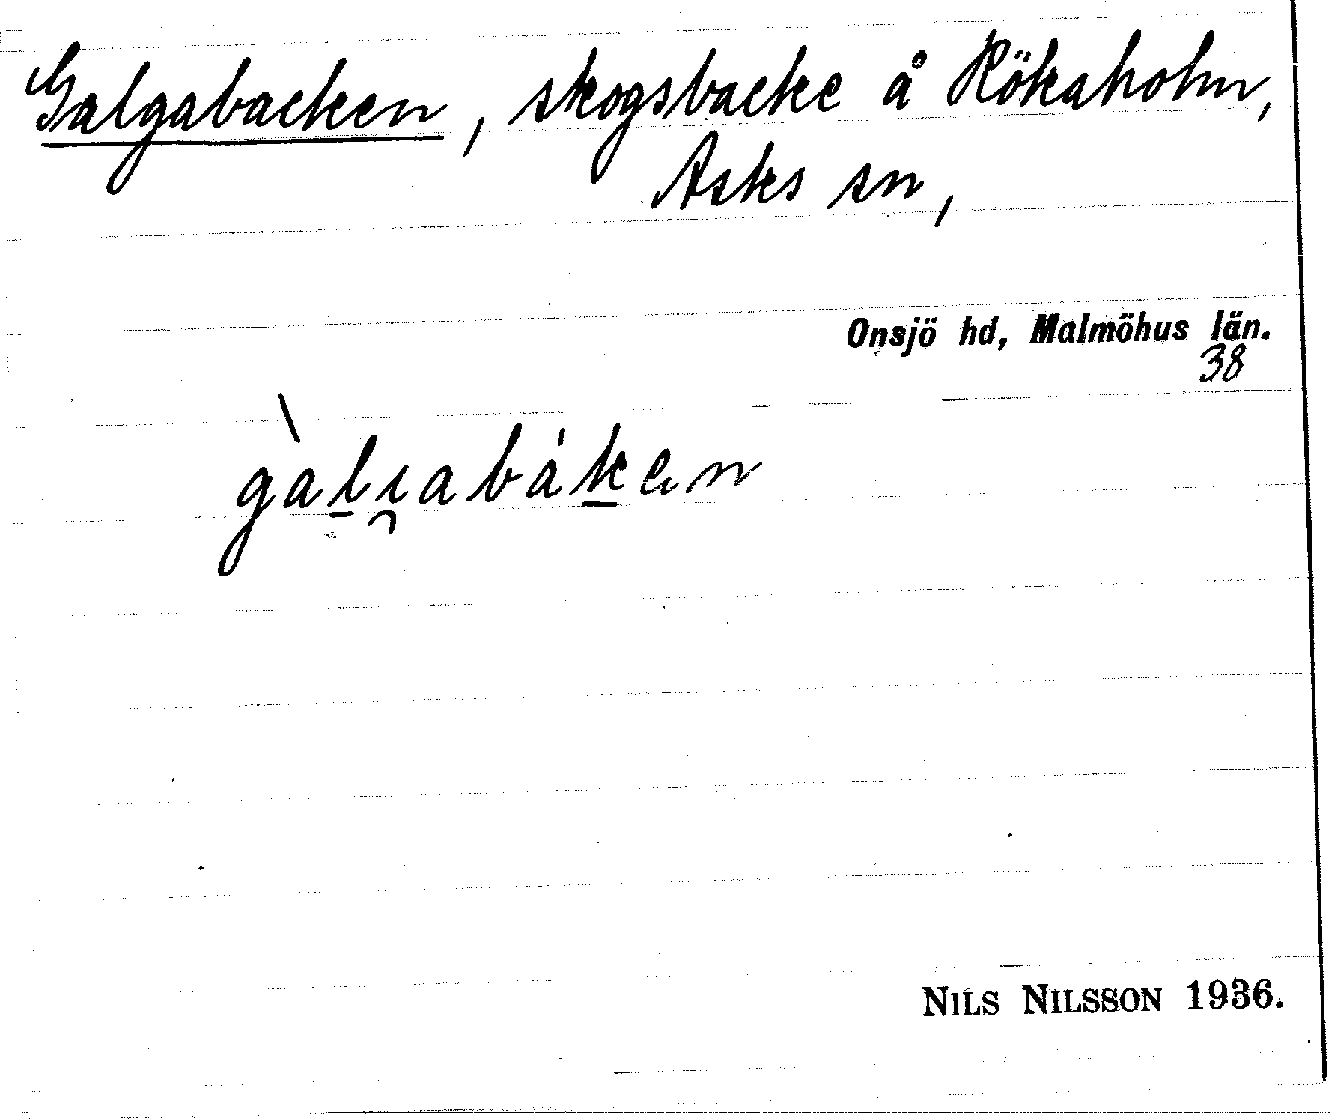 Galgabacken, skogsbacke å Rökaholm,
Asks sn,
Onsjö hd, Malmöhus län.
38
gàlı̯abáken
NILS NILSSON 1936.